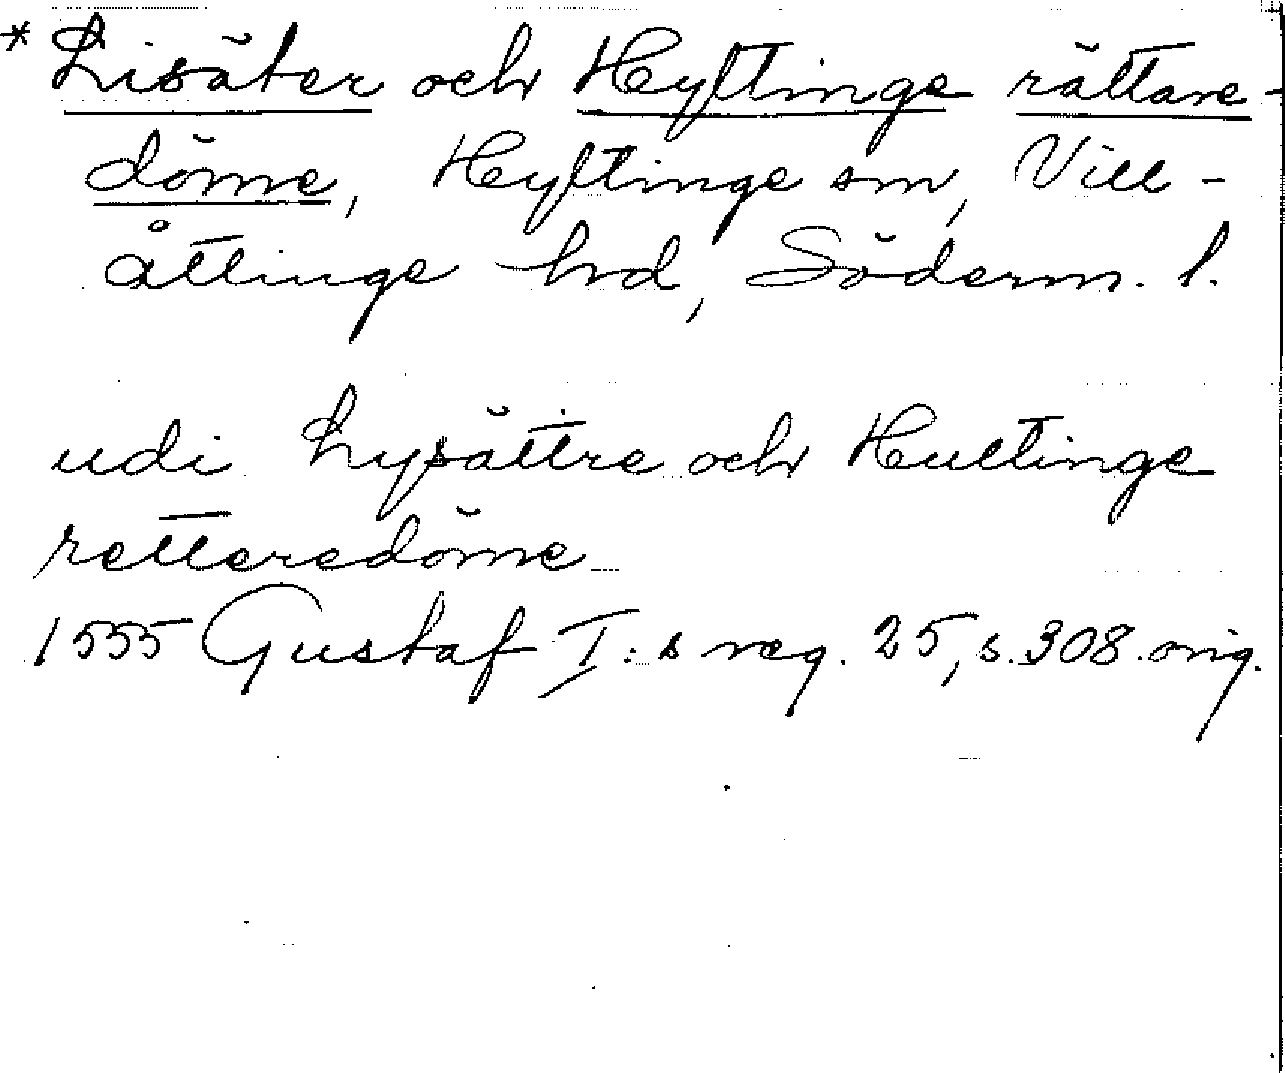 * Lisäter och Heyftinge rättare-
döme, Heyftinge sn, Vill-
åttinge hd, Söderm. l.
udi Lysättre och Hultinge
retteredöme
1555 Gustaf I:s reg. 25, s. 308. orig.